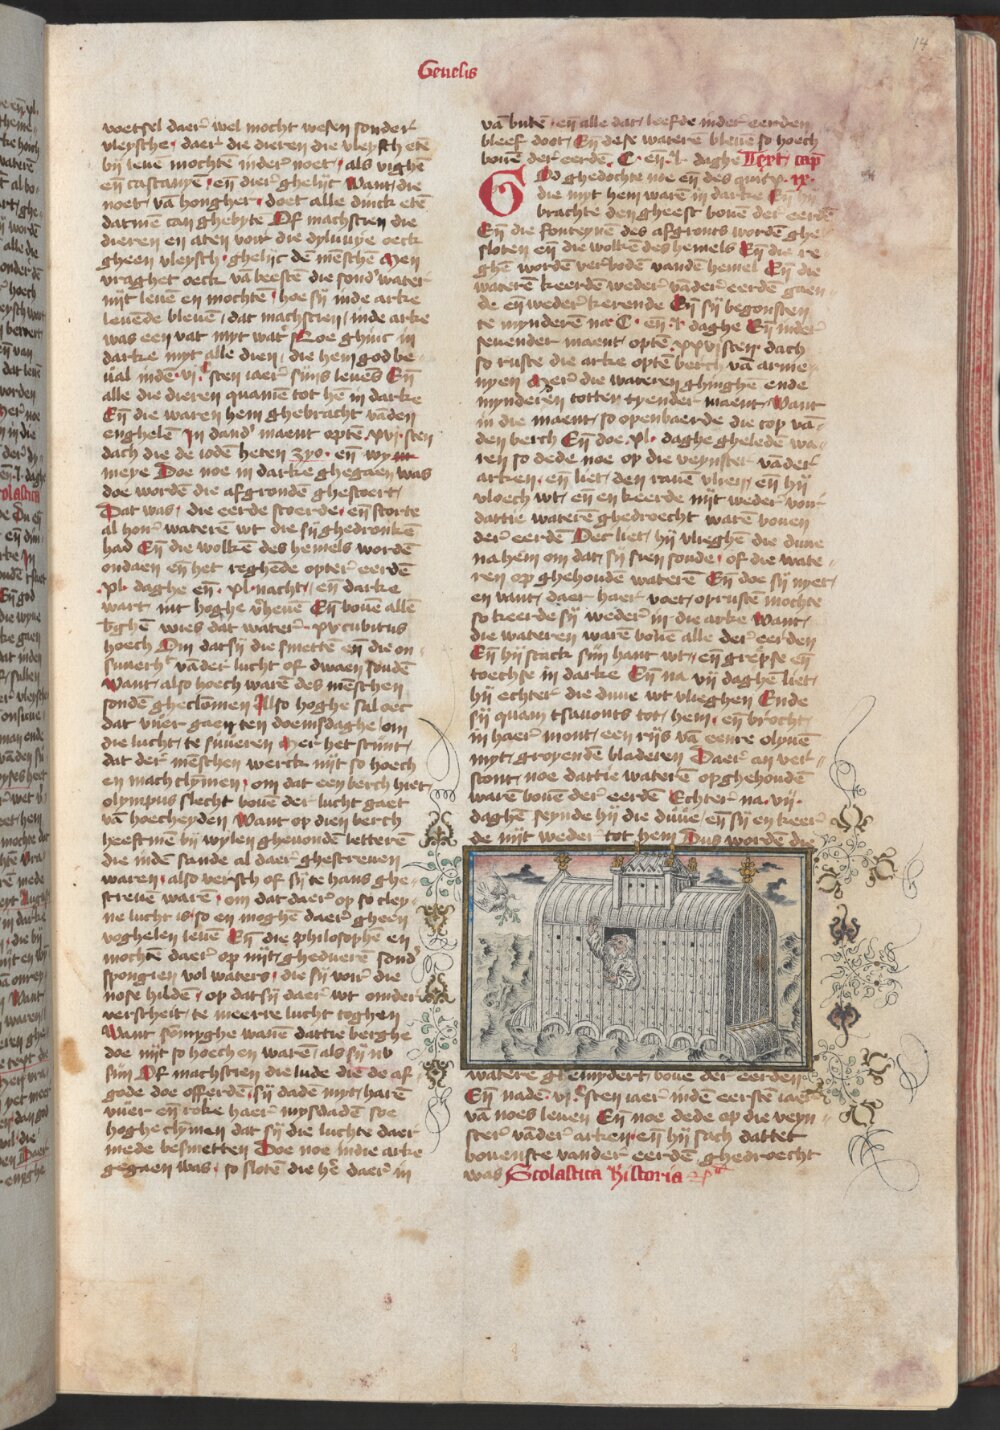 Genesis
14
voetsel daer wel mocht wesen sonder
vleysche · daer die dieren die vleysch etē
bÿ leuē mochtē inder noet / als vighē
eñ castanyē · eñ dier ghelijc Want / die
noet / vā honghet · doet alle dinck etē
datmē can ghebytē Of machscien die
dieren en aten voir die dyluuye oeck
gheen vleysch · ghelijc de mēsche Men
vraghet oeck vā beestē die sond' water
nÿt leuē en mochtē · hoe sÿ inde arke
leuēde bleuē / dat machscien / inde arke
was een vat myt wat' Noe ghinc in
darke myt alle dien / die hem god be
ual indē · vi · sten iaer sijns leuēs Eñ
alle die dieren quamē tot hē in darke
Eñ die warē hem ghebracht vādē
enghelē In dand' maent optē xvij sten
dach die de iodē heten zyo · eñ wy
meye Doe noe in darke ghegaen was
doe wordē die afgrondē ghestoert /
Dat was / die eerde stoerde · eñ storte
al hoir waterē wt die sÿ ghedronkē
had Eñ die wolkē des hemels wordē
ondaen eñ het reghēde opter eerdē
· xl · daghe eñ · xl · nacht / eñ darke
wart int hoghe v'heuē Eñ bouē allē
b'ghē wies dat water · xv cubitus
hoech Om datsÿ die smettē eñ die on
suuerh' vāder lucht of dwaen soudē
Want / also hoech warē des mēschen
sondē gheclomen Also hoghe sal oec
dat vuer gaen ten doemsdaghe / om
die lucht / te suueren Mer het scijnt /
dat der mēschen werck nijt so hoech
en mach clymen · om dat een berch hiet
olympus slecht bouē der lucht gaet
vā hoecheyden Want op dien berch
heeftmē bÿ wylen gheuondē letterē
die indē sande al daer ghescreuen
waren · also versch of sÿ te hans ghe
screuē warē · om dat daer op so cley
ne lucht is · so en moghē daer gheen
voghelen leuē Eñ die philosophē en
mochtē daer op nijt / gheduerē sond'
spongien vol waters · die sÿ voir die
nose hildē / op datsÿ daer wt onider
versheit / te meerre lucht toghen
Want sōmyghe wanē dattie berghe
doe nijt so hoech en warē / als sÿ nv
sijn Of machscien die lude die de af
gode doe offerdē · sÿ dadē myt / harē
vuer eñ roke haer mysdadē soe
hoghe clymen dat sÿ die luchte daer
mede besmetten Doe noe indie arke
gegaen was · so slotē die h'e daer in
vā butē · eñ alle dat / leefde inder eerden
bleef doot / Eñ dese waterē bleuē so hoech
bouē der eerdē · C · eñ · l · daghe Text / cap
· ix ·
God ghedochte noe eñ des
die myt hem warē in darke Eñ hÿ
brachte den gheest bouē der eerdē
Eñ die fonteynē des afgronts wordē ghe
sloten eñ die wolkē des hemels Eñ die re
ghē wordē verbodē vanden hemel Eñ die
waterē keerdē weder vāder eerdē gaen
de eñ weder kerende Eñ sÿ begonsten
te mynderē na · C · eñ · l · daghe Eñ inder
seuender maent optē xxvijsten dach
so ruste die arke optē berch vā arme
nyen Mer die wateren ghinghē ende
mynderen totten tyender maent / Want
in die maent / so openbaerde die top vā
den berch Eñ doe · xl · daghe gheledē wa
rē so dede noe op die veynster vāder
arken · eñ liet / den rauē vlien / eñ hÿ
vloech wt / eñ en keerde nijt weder voir
dattie waterē ghedroecht warē bouen
der eerdē Doe liet / hÿ vlieghē die duue
na hem om dat / sÿ sien soude · of die wate
ren op ghehoudē waterē Eñ doe sÿ nyet /
en vant / daer haer voet / op rustē mochte
so keerde sÿ weder in die arke Want /
die wateren warē bouē alle der eerden
Eñ hÿ stack sijn hant wt / eñ grepse eñ
toechse in darke Eñ na vij daghē liet /
hÿ echter die duue wt vlieghen Ende
sÿ quam tsauonts tot / hem · eñ brocht /
in haer mont / een rijs vā eenre olyuē
myt / groyendē bladeren Daer an ver
stont / noe dattie waterē opghehoudē
warē bouē der eerdē Echter na · vij ·
daghē seynde hÿ die duue / eñ sÿ en keer
de nijt weder tot hem Dus wordē die
waterē ghemyndert / bouē der eerden
Eñ inden · vi · sten iaer indē eerstē iaer
vā noes leuen Eñ noe dede op die veyn
ster vāder arken · eñ hÿ sach dattet
bouenste vander eerdē ghedroecht
was Scolastica historia